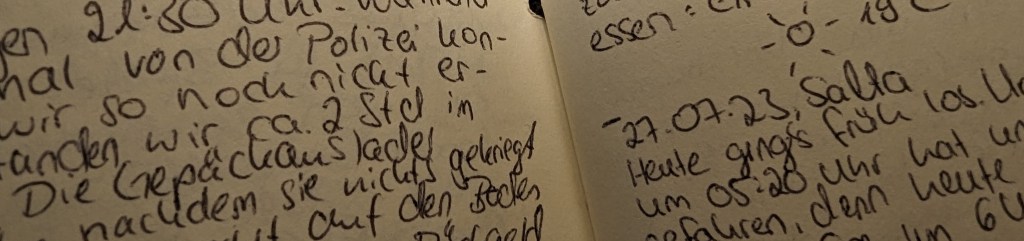 en 21:30 Uhr.
mal von der Polizei kon-
wir so noch nicht er-
anden wir ca. 2 Std im
Die Gepäckauslader gekriegt
nachdem sie nichts
auf den Boden
essen:
19
-27.07.23, Salta
Heute ging's früh los.
um 05:20 Uhr hat
gefahren, denn heute
um 6